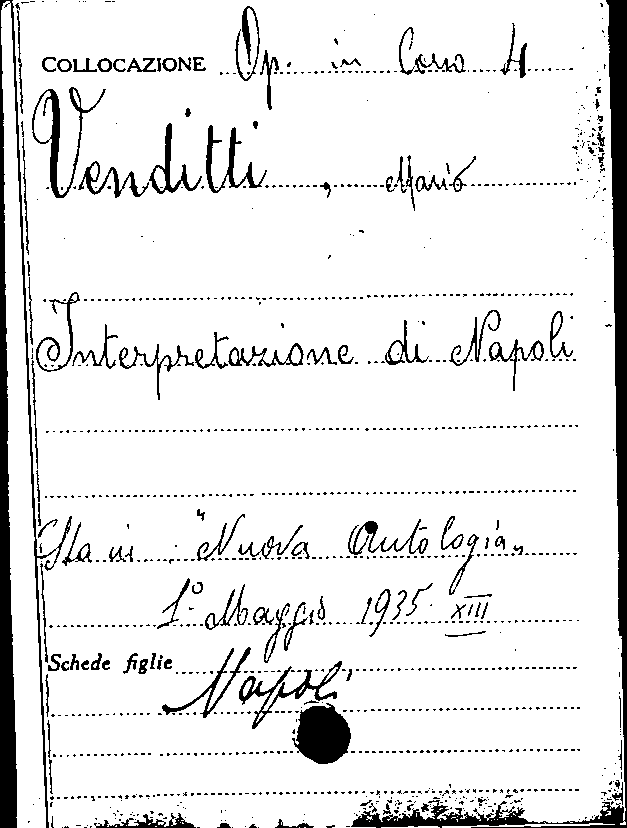 COLLOCAZIONE Op. in Corso 4
Venditti, Mario
Interpretazione di Napoli
Sta in: "Nuova Antologia"
1º Maggio 1935 XIII
Schede figlie
Napoli